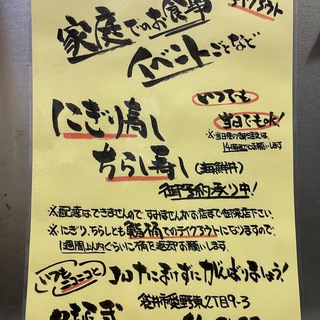 テイクアウト
家庭でのお食事
イベントごとなど
にぎり寿し
いつでも
当日でもOK!
※当日の御注文は、
14時までにお願いします
ちらし寿し(海鮮丼)
御予約承り中!
※配達はできませんので、すみませんがお店まで御来店下さい。
※にぎり、ちらしとも飯桶でのテイクアウトになりますので、
1週間以内ぐらいに桶を返却お願いします。
いつもニコニコ
コロナにまけずにがんばりましょう!
袋井市愛野東2丁目9-3